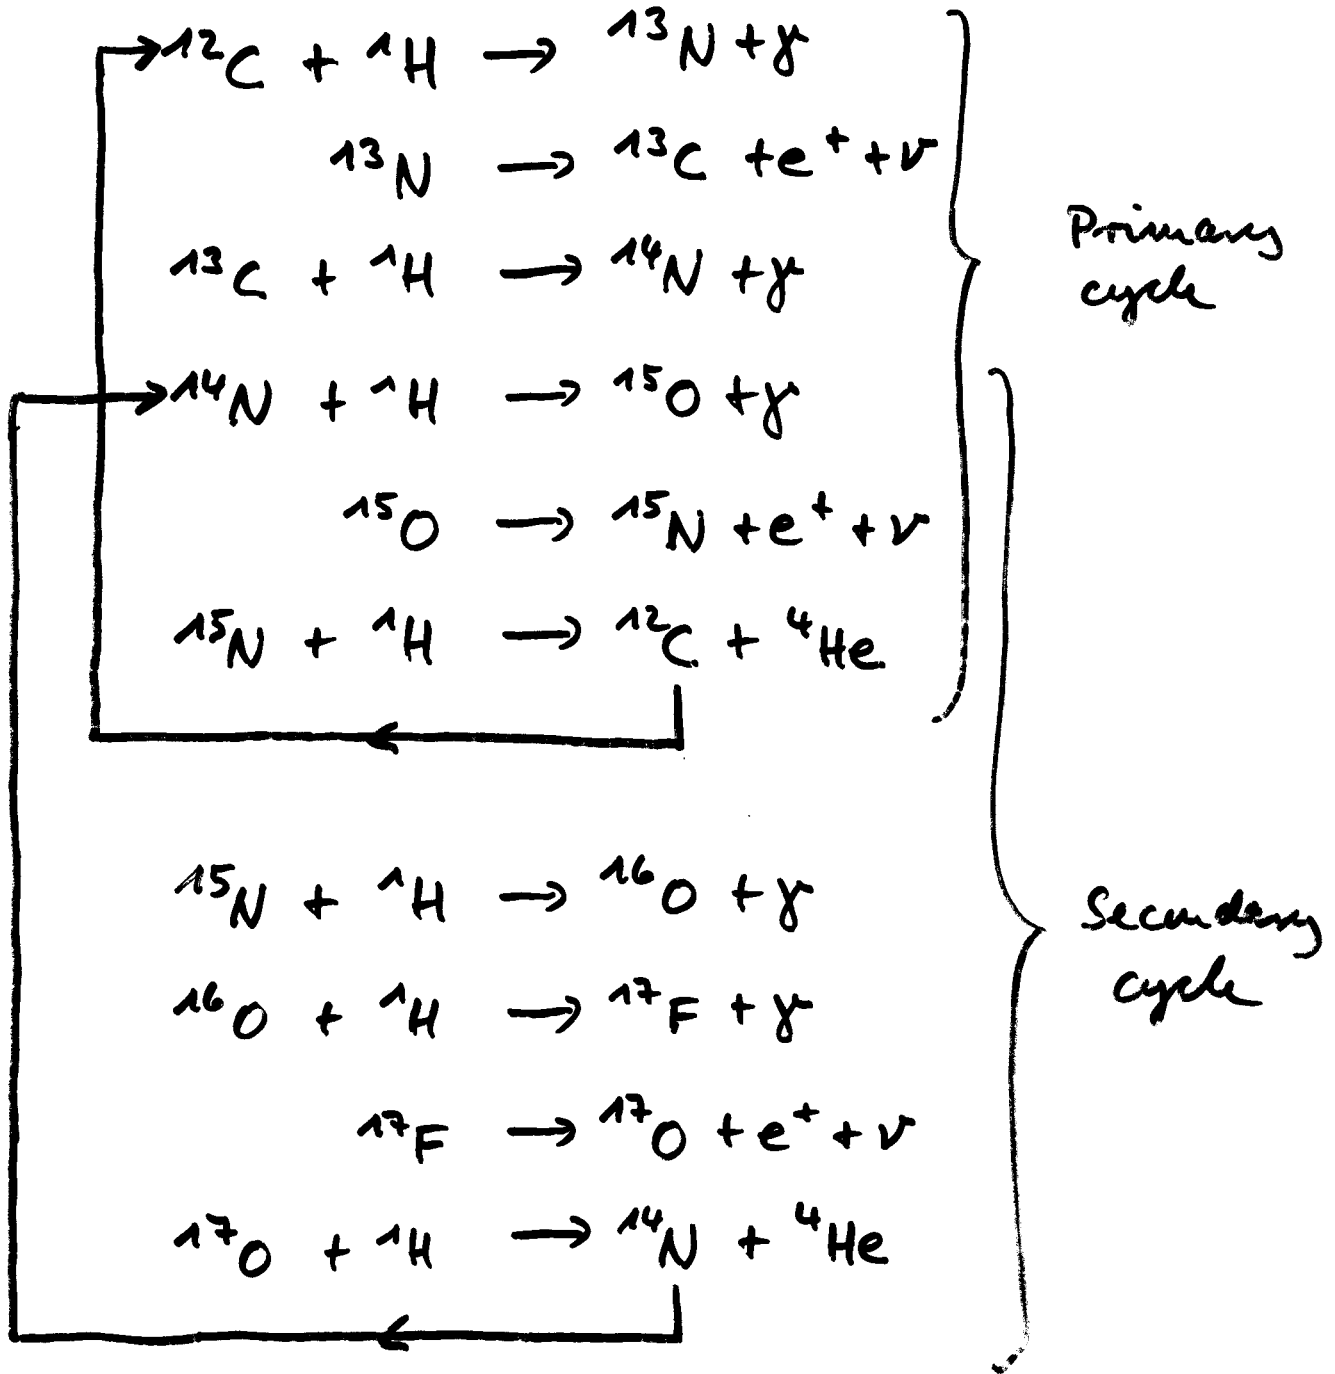 ¹²C + ¹H → ¹³N + γ
¹³N → ¹³C + e⁺ + ν
¹³C + ¹H → ¹⁴N + γ
¹⁴N + ¹H → ¹⁵O + γ
¹⁵O → ¹⁵N + e⁺ + ν
¹⁵N + ¹H → ¹²C + ⁴He
Primary
cycle
¹⁵N + ¹H → ¹⁶O + γ
¹⁶O + ¹H → ¹⁷F + γ
¹⁷F → ¹⁷O + e⁺ + ν
¹⁷O + ¹H → ¹⁴N + ⁴He
Secundary
cycle